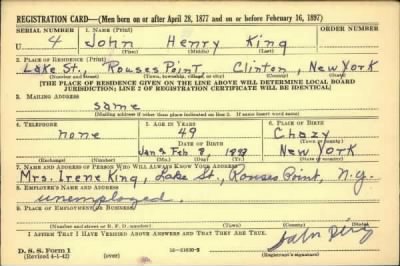 REGISTRATION CARD—(Men born on or after April 28, 1877 and on or before February 16, 1897)
SERIAL NUMBER 1. NAME (Print) ORDER NUMBER
U 4 John Henry King
(First) (Middle) (Last)
2. PLACE OF RESIDENCE (Print)
Lake St., Rouses Point, Clinton, New York
(Number and street) (Town, township, village, or city) (County) (State)
[THE PLACE OF RESIDENCE GIVEN ON THE LINE ABOVE WILL DETERMINE LOCAL BOARD
JURISDICTION; LINE 2 OF REGISTRATION CERTIFICATE WILL BE IDENTICAL]
3. MAILING ADDRESS
same
(Mailing address if other than place indicated on line 2. If same insert word same)
4. TELEPHONE 5. AGE IN YEARS 6. PLACE OF BIRTH
none 49 Chazy
DATE OF BIRTH (Town or county)
Feb 8, New York
(Exchange) (Number) (Mo.) (Day) (Yr.) (State or country)
7. NAME AND ADDRESS OF PERSON WHO WILL ALWAYS KNOW YOUR ADDRESS
Mrs. Irene King, Lake St., Rouses Point, N.Y.
8. EMPLOYER'S NAME AND ADDRESS
unemployed.
9. PLACE OF EMPLOYMENT OR BUSINESS
(Number and street or R. F. D. number) (Town) (County) (State)
I AFFIRM THAT I HAVE VERIFIED ABOVE ANSWERS AND THAT THEY ARE TRUE.
D. S. S. Form 1
(Revised 4-1-42) (over) 16—21630-2 (Registrant's signature)
John King